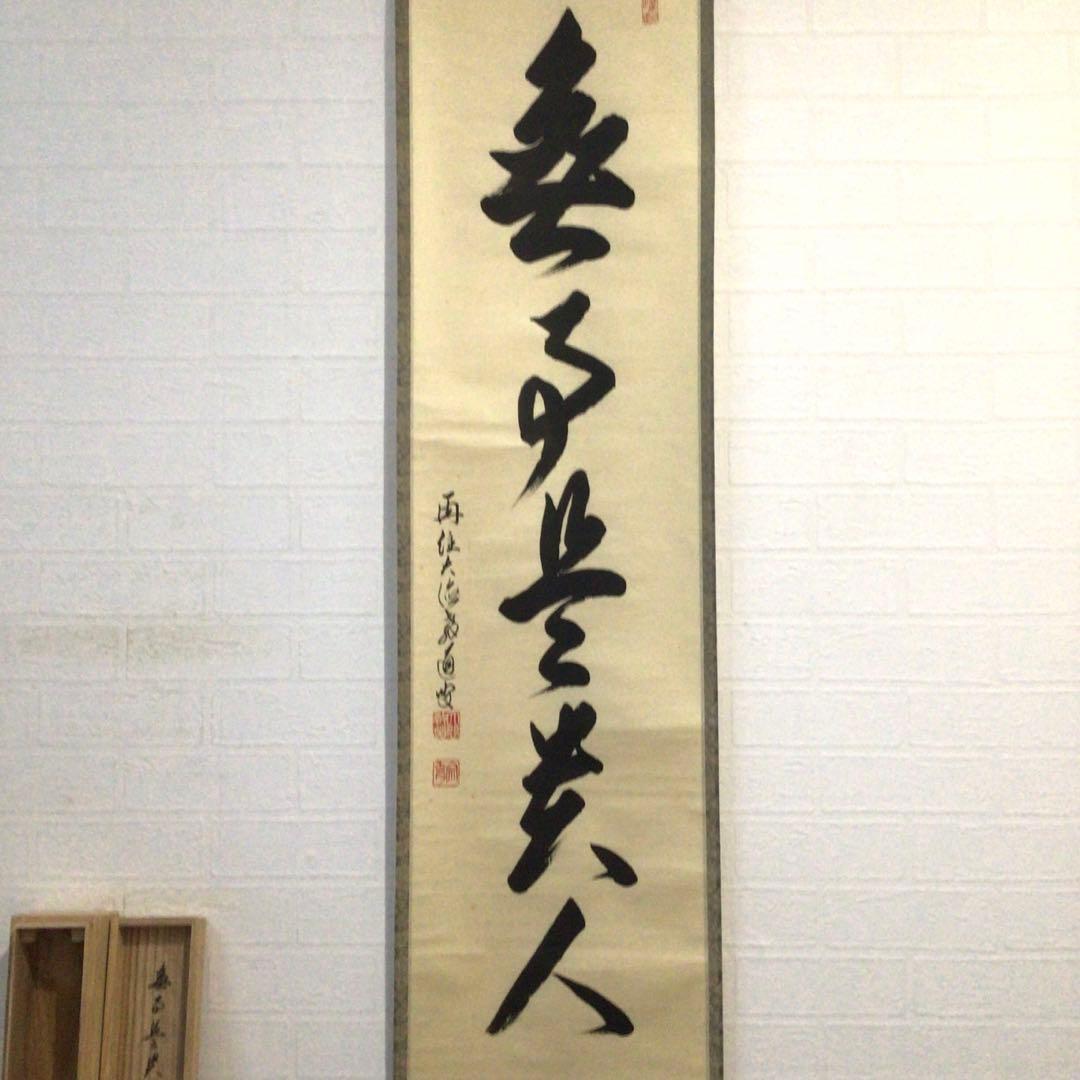 無事是貴人
再住大徳教道叟
無事是貴